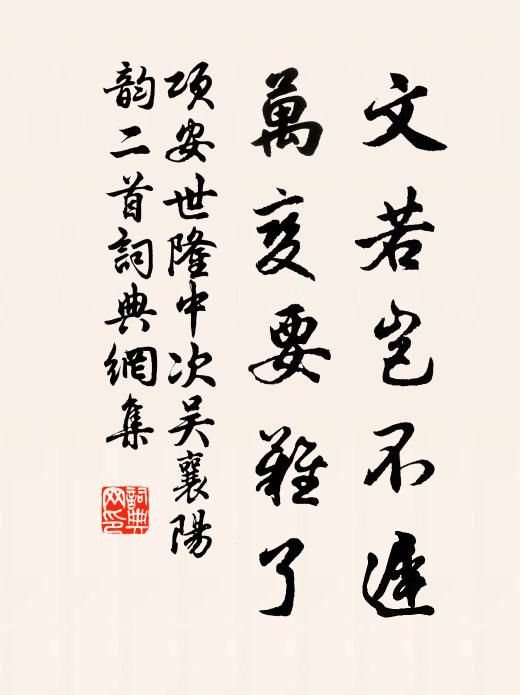 文若豈不遲
萬變要難了
項安世隆中次吴襄陽
韵二首詞典網集
詞典
网印